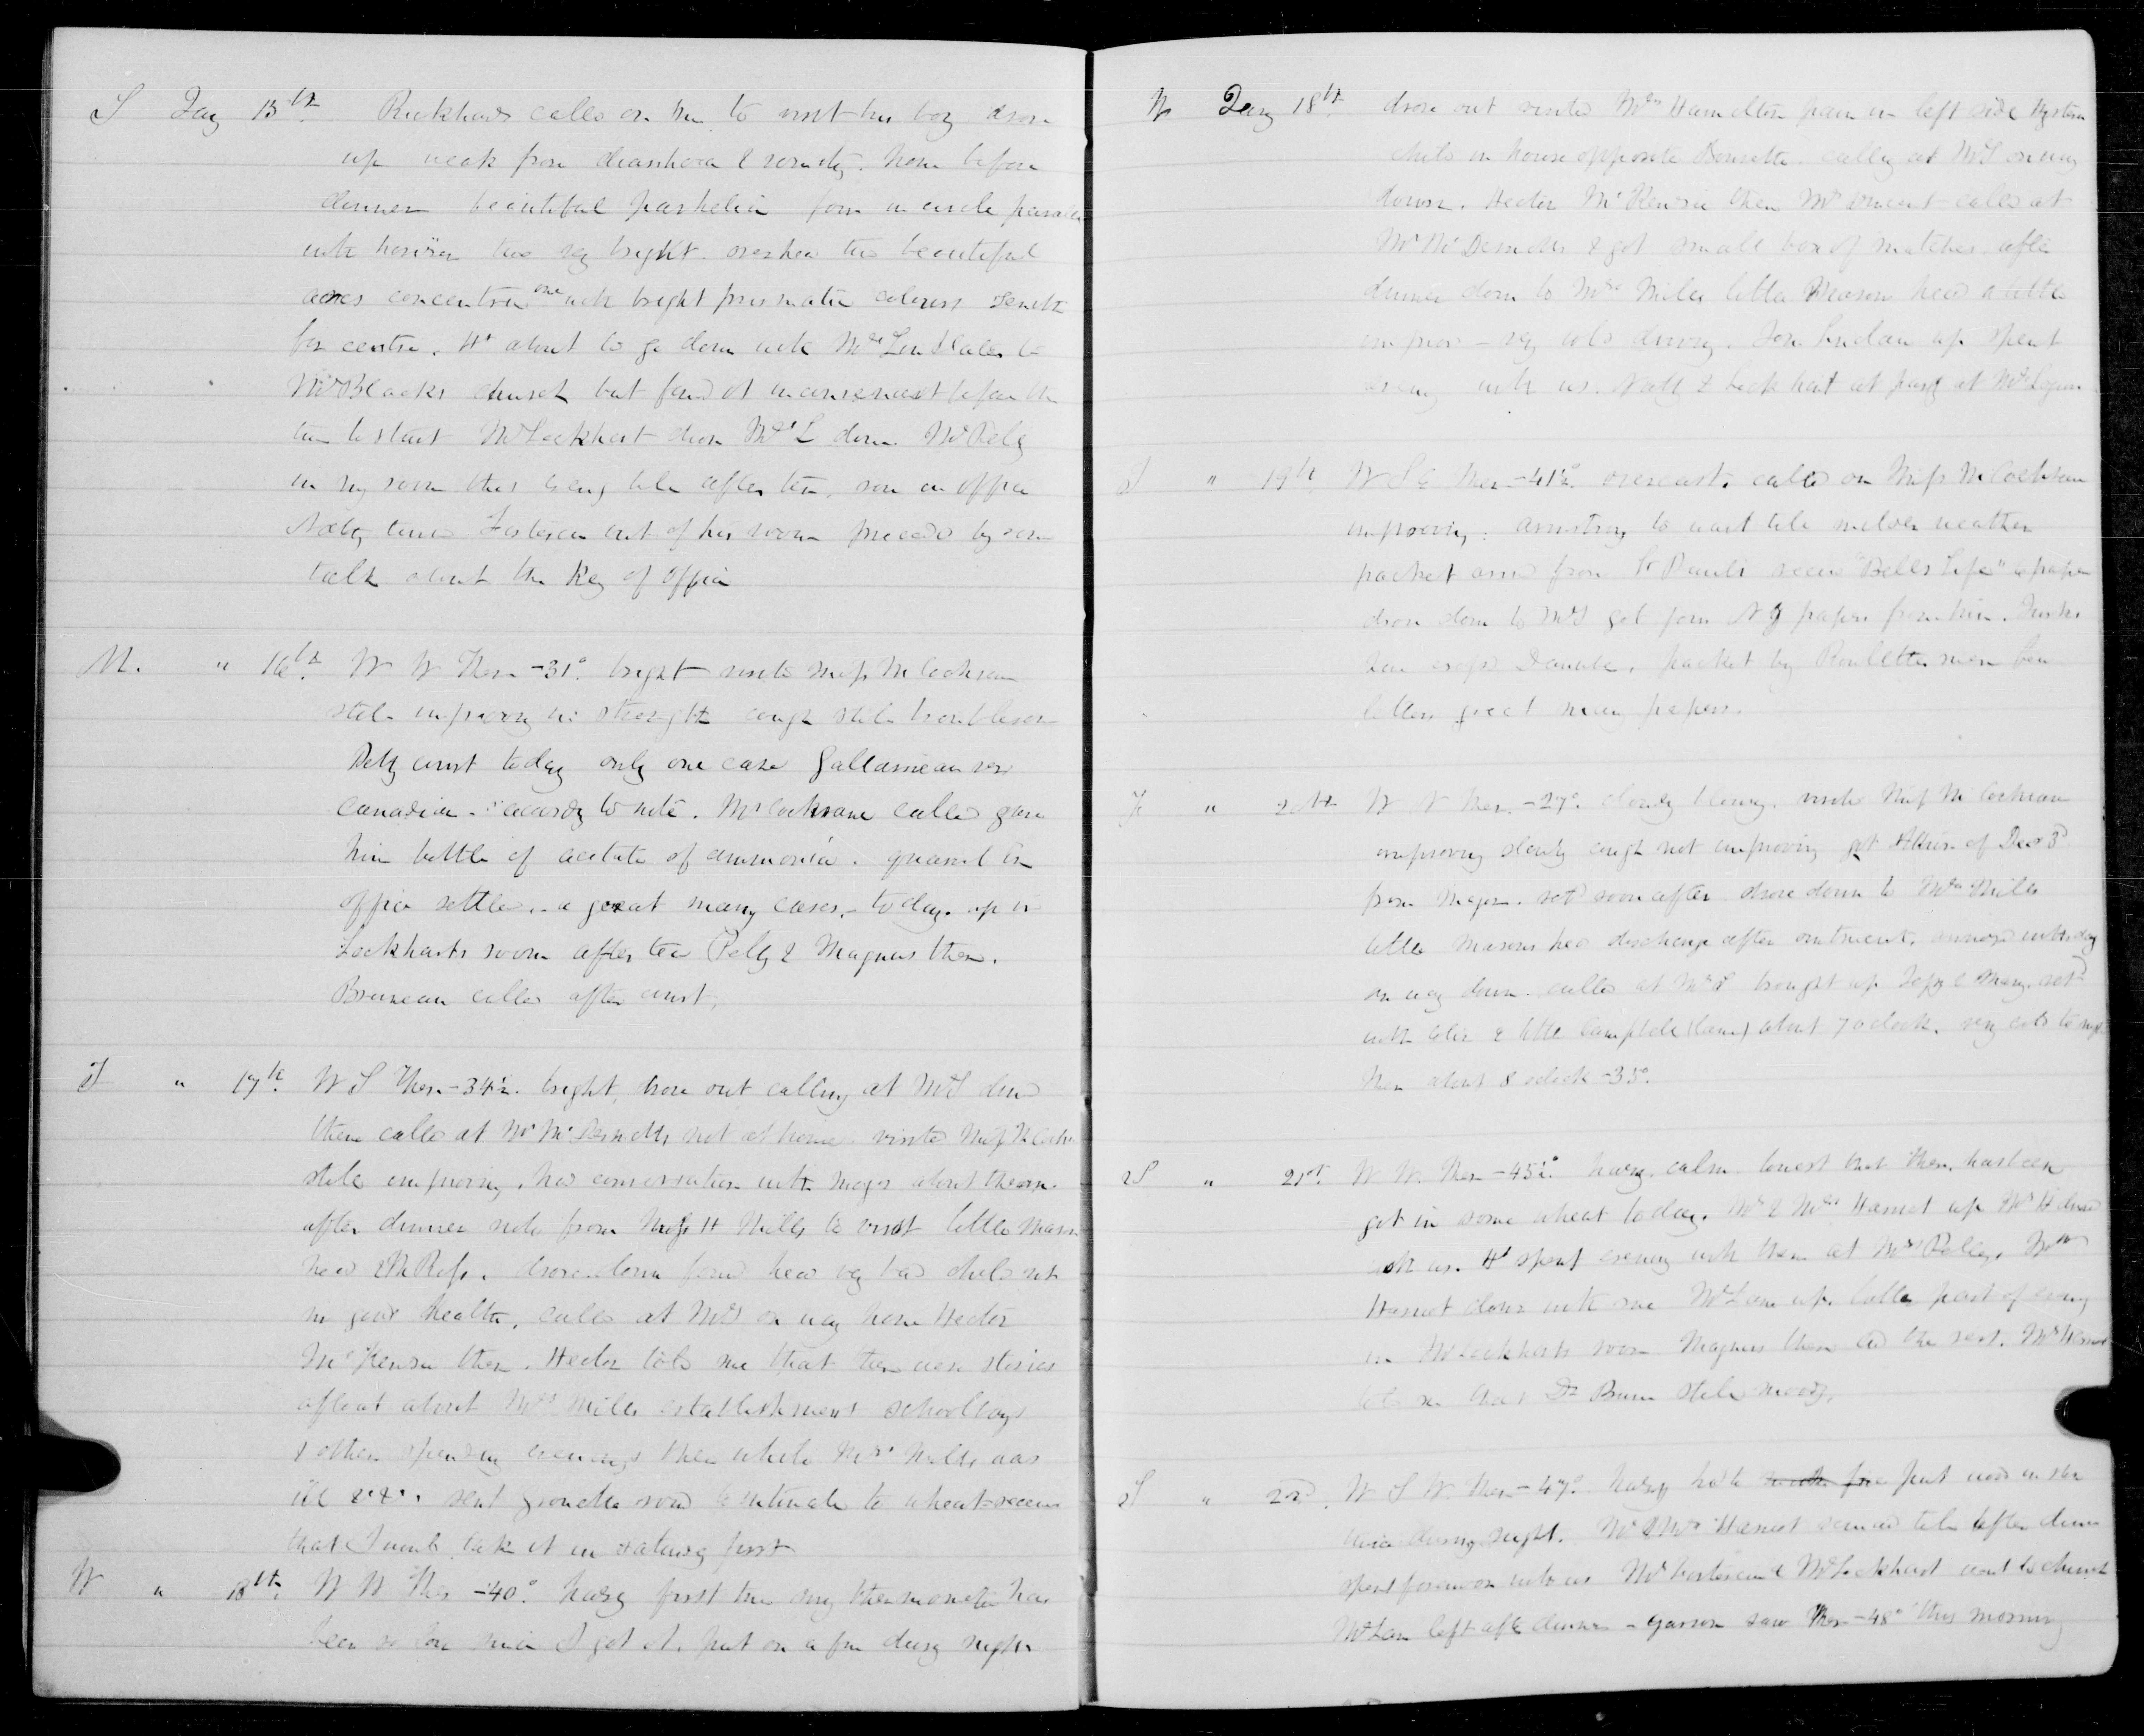 S Jany 15th. Rickhards called on me to visit his boy drove
up weak from diarrhoea & vomitg. home before
dinner beautiful parhelia form in circle parallel
with horizon two vy bright. overhead two beautiful
arcs concentric one with bright prismatic colours Zenith
for centre. Hd about to go down with Mrs
Mr Blacks church but found it inconvenient before the
time to start Mr Lockhart drove Mrs L down. Mr Pelly
in my room this eveng till after tea, row in office
Natty turned Fortescue out of his room preceded by some
talk about the Key of office
M. " 16th. W W Ther -31° bright visited Miss McCochrane
still improving in strength cough still troublesome
Petty court today only one case Gallarneau vs
Canadian. accordg to note. Mr Cochrane called gave
him bottle of acetate of ammonia. quarrel in
office settled. a great many cases, today. up in
Lockharts room after tea Pelly & Magnus there.
Bruneau called after court,
T " 17th. W S Ther -34½. bright, drove out calling at McD
there called at Mr McDermotts not at home. visited Miss McCochrane
still improving, had conversation with Major about
after dinner note from Miss H Mills to visit little Mason
head & McRoss. drove down found head vy bad child not
in good health, called at McD on way home Hector
McKenzie there. Hector told me that there were stories
afloat about Mrs Mills establishment schoolboys
& others spending evenings there while Mrs Mills was
ill &c &c. sent word to
that I would take it in Saturday first
W " 18th. W W Ther -40°. hazy first time my thermometer has
been so low since I got it. put on a fire during night
W Jany 18th. drove out visited Mrs Hamelton pain in left side Hysteria
child in house opposite calling at McD on way
down. Hector McKenzie there Mr Vincent called at
Mr McDermotts & got small box of matches after
dinner down to Mrs Mills little Mason head a little
improved - vy cold driving. up spent
eveng with us. Natty & Lockhart at party at Mr
T " 19th. W S E Ther -41½° overcast. called on Miss McCochrane
improving. Armstrong to wait till milder weather
packet arrd from St Pauls recd "Bells Life" a paper
drove down to McD got some N Y papers from him.
have crossed Danube. packet by Roulette seven few
letters great many papers.
F " 20th W N Ther. -27°. cloudy blowing. visited Miss McCochrane
improving slowly cough not improving got Albion of Decr 3d
from Major. retd soon after drove down to Mrs Mills
little Masons head discharge after ointment,
on way down. called at McD brought up & Mary. retd
with & little Campbell (lame) about 7 oclock. very cold tonight
Ther about 8 oclock -35°.
S " 21st. W W. Ther -45½° hazy. calm. lowest that Ther. has been
got in some wheat today. Mr & Mrs Harriot up Mr H dined
with us. Hd spent evening with them at Mrs Pellys, Mrs
Harriot down with me McLane up. latter part of evening
in Mr Lockharts room Magnus there and the rest. Mr Harriot
told me that Dr Bunn still moody.
S " 22d. W S W. Ther -47° hazy had to put wood in stove
twice during night. Mr & Mrs Harriot remaind till after dinner
spent forenoon with us Mr Fortescue & Mr Lockhart went to church
McLane left after dinner - Garson saw Ther -48° this morning